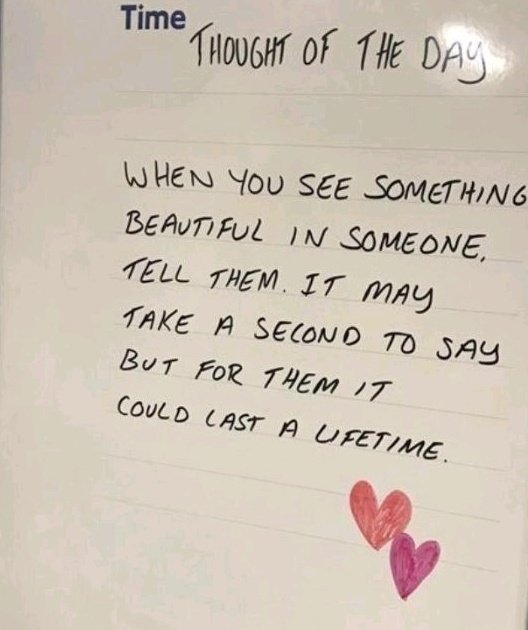 Time
THOUGHT OF THE DAY
WHEN YOU SEE SOMETHING
BEAUTIFUL IN SOMEONE,
TELL THEM. IT MAY
TAKE A SECOND TO SAY
BUT FOR THEM IT
COULD LAST A LIFETIME.